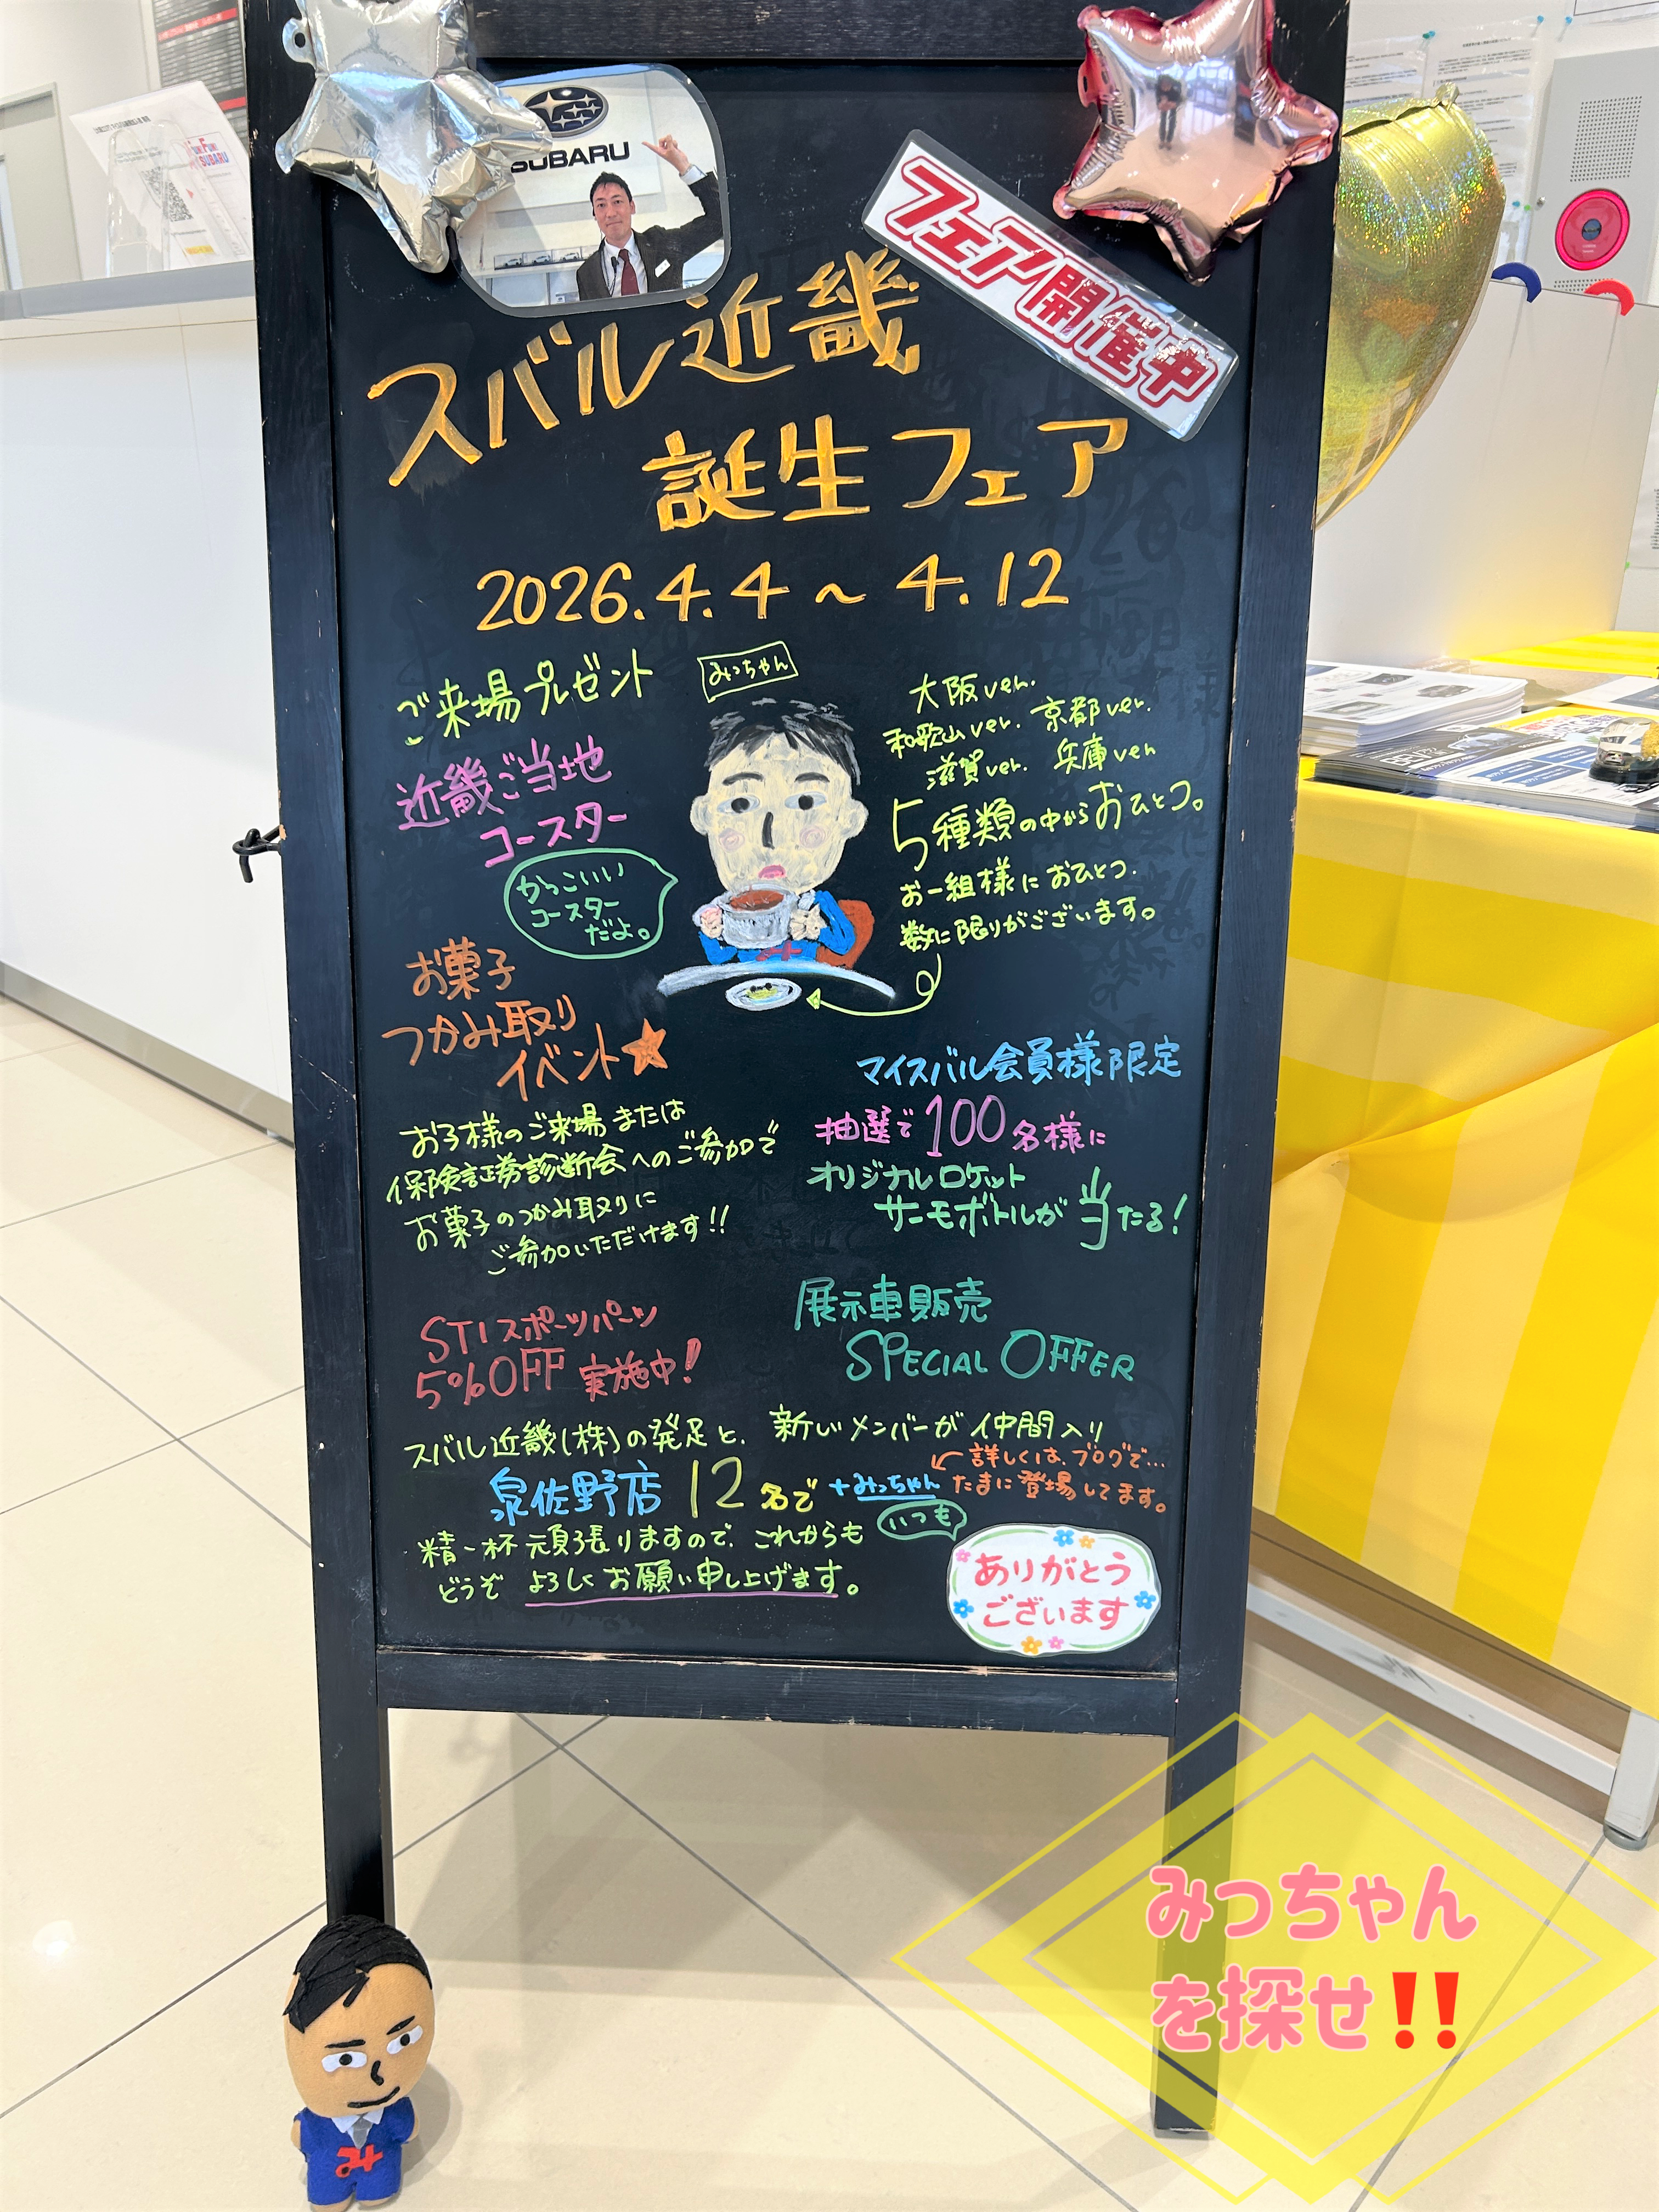 SUBARU
フェア開催中
スバル近畿
誕生フェア
2026.4.4～4.12
ご来場プレゼント
近畿ご当地
コースター
みっちゃん
かっこいい
コースター
だよ。
大阪ver.
和歌山ver. 京都ver.
滋賀ver. 兵庫ver
5種類の中からおひとつ。
お一組様におひとつ.
数に限りがございます。
お菓子
つかみ取り
イベント★
お子様のご来場または
保険証券診断会へのご参加で
お菓子のつかみ取りに
ご参加いただけます!!
マイスバル会員様限定
抽選で100名様に
オリジナルロケット
サーモボトルが当たる!
STIスポーツパーツ
5%OFF実施中!
展示車販売
SPECIAL OFFER
スバル近畿(株)の発足と、新しいメンバーが仲間入り
泉佐野店 12名で +みっちゃん
詳しくは、ブログで…
たまに登場してます。
いつも
精一杯頑張りますので、これからも
どうぞ よろしくお願い申し上げます。
ありがとう
ございます
み
みっちゃん
を探せ!!